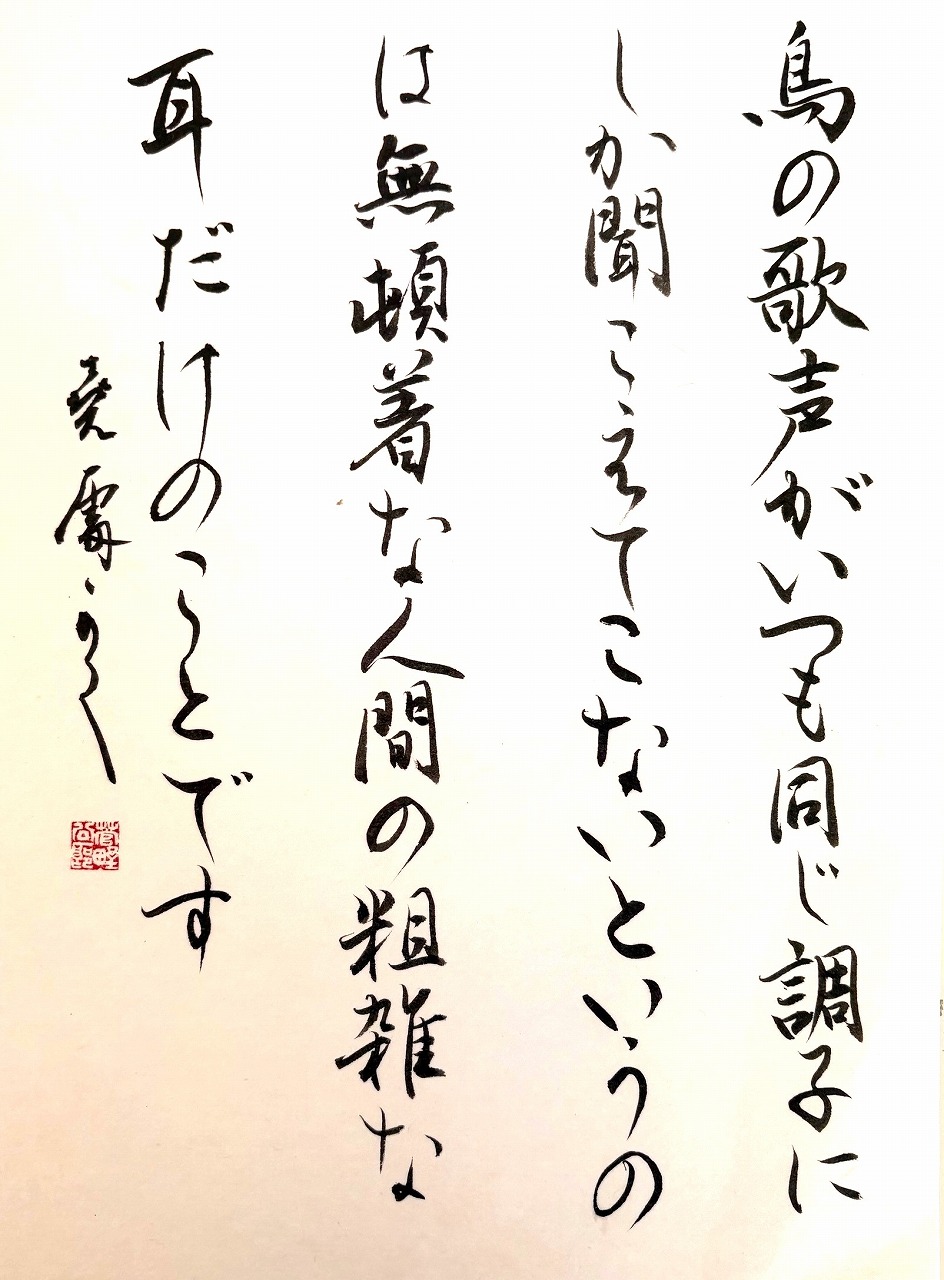 鳥の歌声がいつも同じ調子に
しか聞こえてこないというの
は無頓着な人間の粗雑な
耳だけのことです